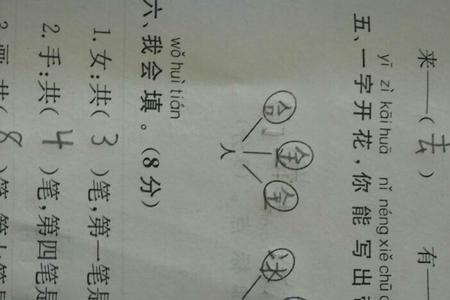 来—(去) 有—
yī zì kāi huā nǐ néng xiě chū
五、一字开花,你能写出
合 全
人
wǒ huì tián
六、我会填。(8分)
1.女:共(3)笔,第一笔是
2.手:共(4)笔,第四笔是